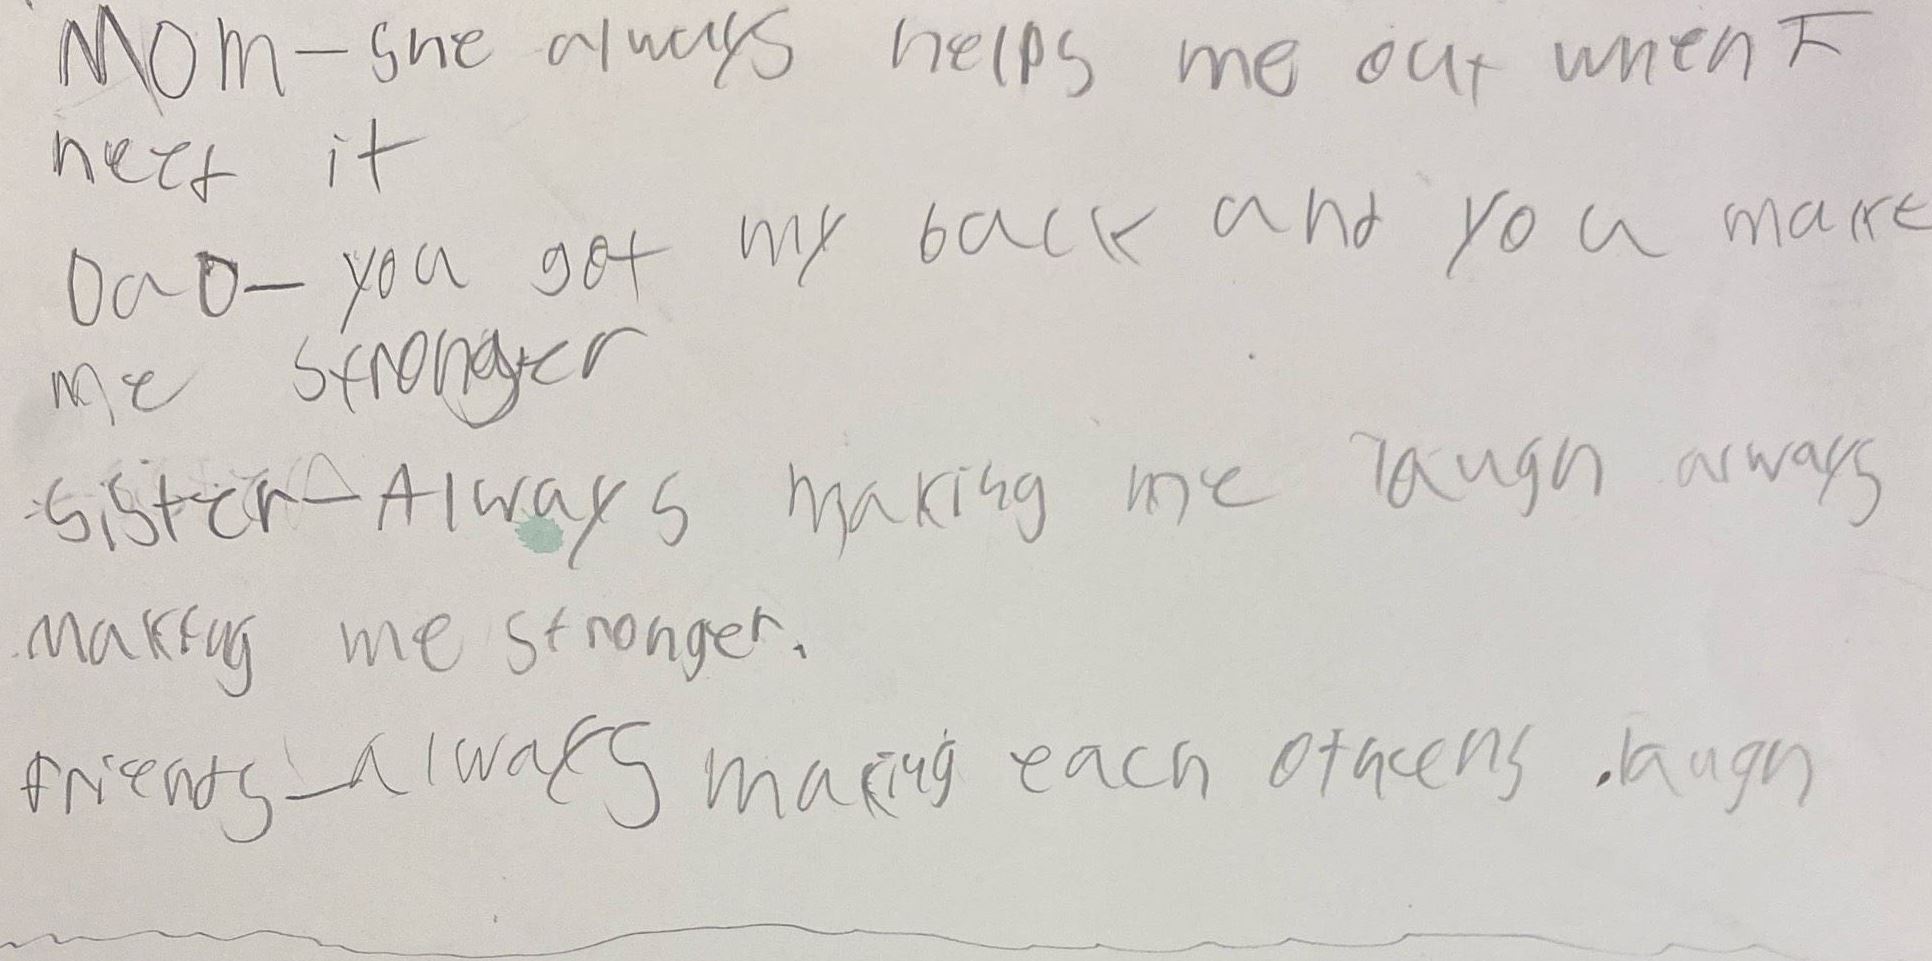 Mom - she always helps me out when I
need it
DaD - you got my back and you make
me stronger
sister - Always making me laugh always
making me stronger.
friends - always making each otheers laugh